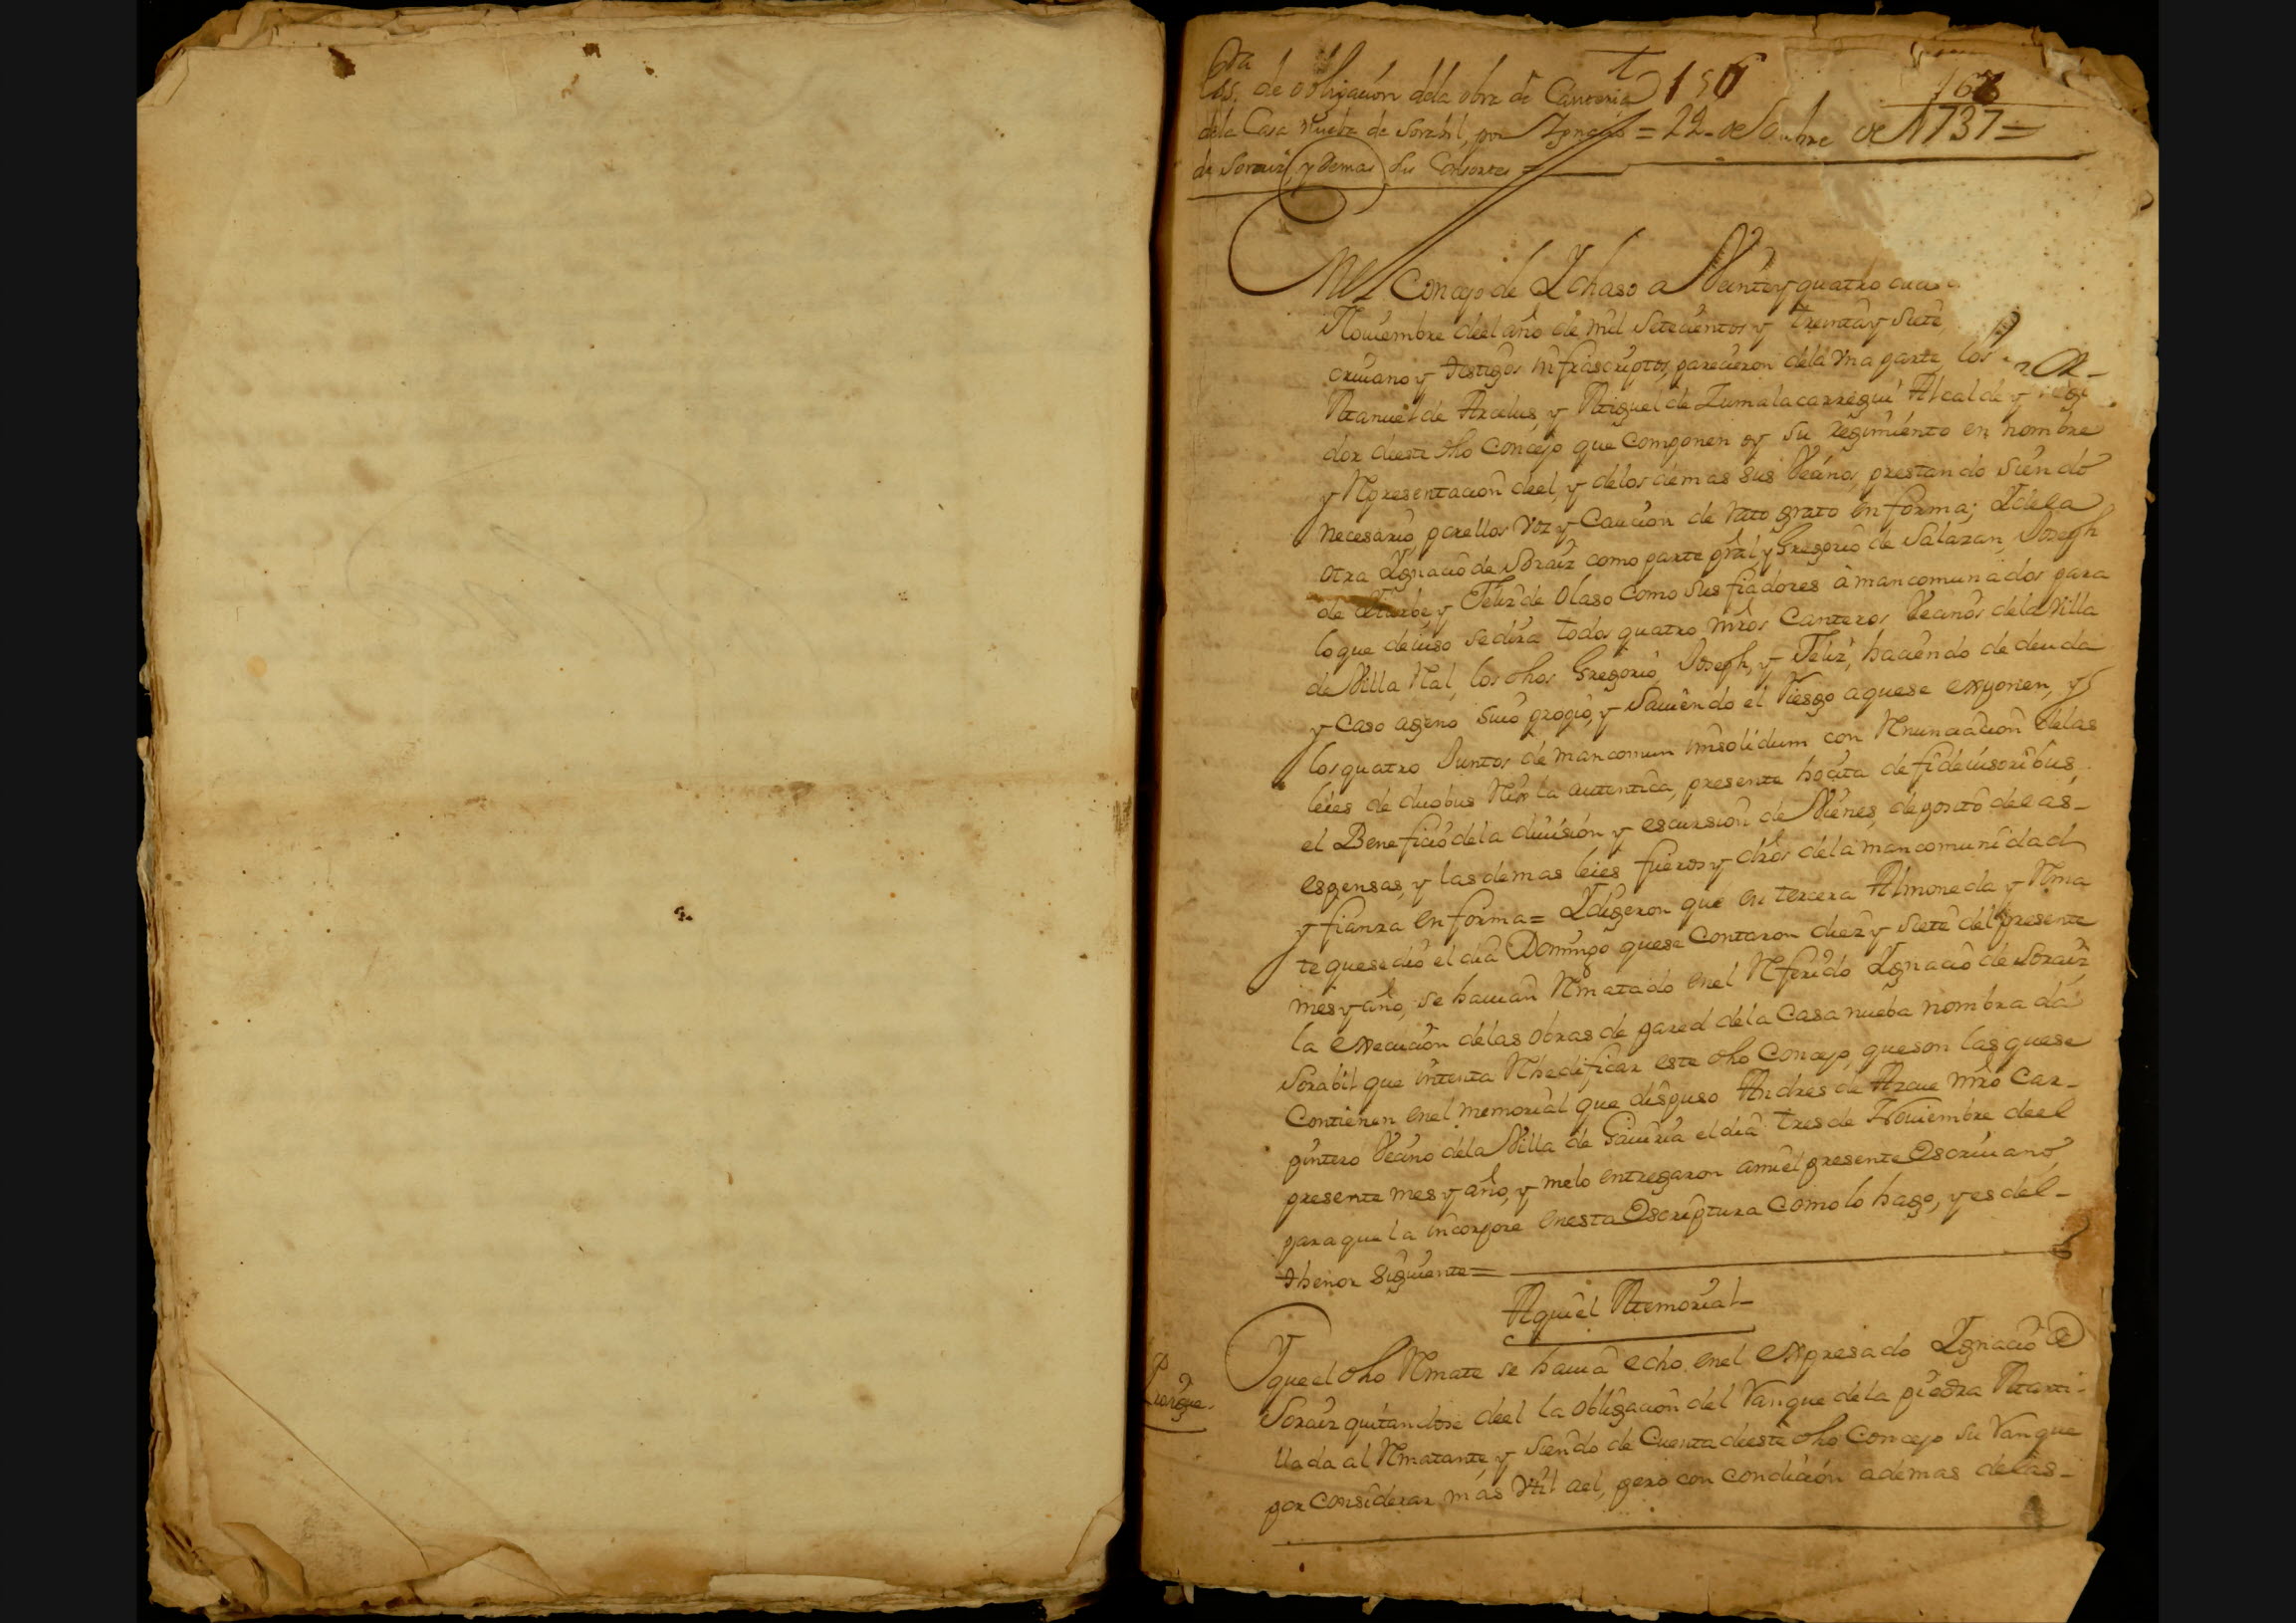 Ess.ra de obligacion dela obra de Canteria 156 168
dela Casa nueba de Sorabil, por Ygnacio = 22 de de 1737=
de Soraiz, y demas sus Consortes =
Enel Concejo de Ichaso a Veinte y quatro
Nouiembre deel año de mil Setecientos y treinta y siete,
criuano y testigos infrascriptos, parecieron dela vna parte los
Manuel de Arelus, y Miguel de Zumalacarregui Alcalde y regi
dor deeste dho Concejo que Componen oy su regimiento en nombre
y Representacion deel, y delos demas sus Vecinos, prestando siendo
necesario, por ellos voz y Caucion de rato grato en forma; Y dela
otra Ygnacio de Soraiz como parte prãl, y Gregorio de Salazan, Joseph
de Yturbe, y Feliz de Olaso como sus fiadores â mancomunados para
lo que deiuso se dira todos quatro mros Canteros Vecinos dela Villa
de Villa Real, los dhos Gregorio, Joseph, y Feliz, haciendo de deuda
y caso ageno suio propio, y Sauiendo el riesgo aquese exponen, y
los quatro Juntos de mancomun innsolidum con Renunciacion delas
leies de duobus Reis la autentica, presente hocita de fideiusoribus
el Beneficio dela diuision y escursion de Vienes, deposito de las-
espensas, y las demas leies fueros y dros dela mancomunidad
y fianza en forma= Y digeron que en tercera Almoneda y Rema
te quese dio el dia Domingo quese Contaron diez y siete del presente
mes y año, se hauian Rematado enel Referido Ygnacio de Soraiz
la execucion delas obras de pared dela Casa nueba nombrada
Sorabil que intenta Rhedificar este dho Concejo, que son las quese
Contienen enel memorial que dispuso Andres de Arcue mro Car-
pintero Vecino dela Villa de Gauiria el dia tres de Nouiembre deel
presente mes y año, y melo entregaron ami el presente Escriuano,
para que la incorpore enesta Escriptura Como lo hago, y es del-
thenor siguiente=
Aqui el Memorial-
Y que el dho Remate se hauia echo enel expresado Ygnacio de
Soraiz quitandose deel la obligacion del Ranque dela piedra Marti-
llada al Rematante, y siendo de Cuenta deeste dho Concejo su Ranque
por considerar mas vtil ael, pero con condicion ademas delas-